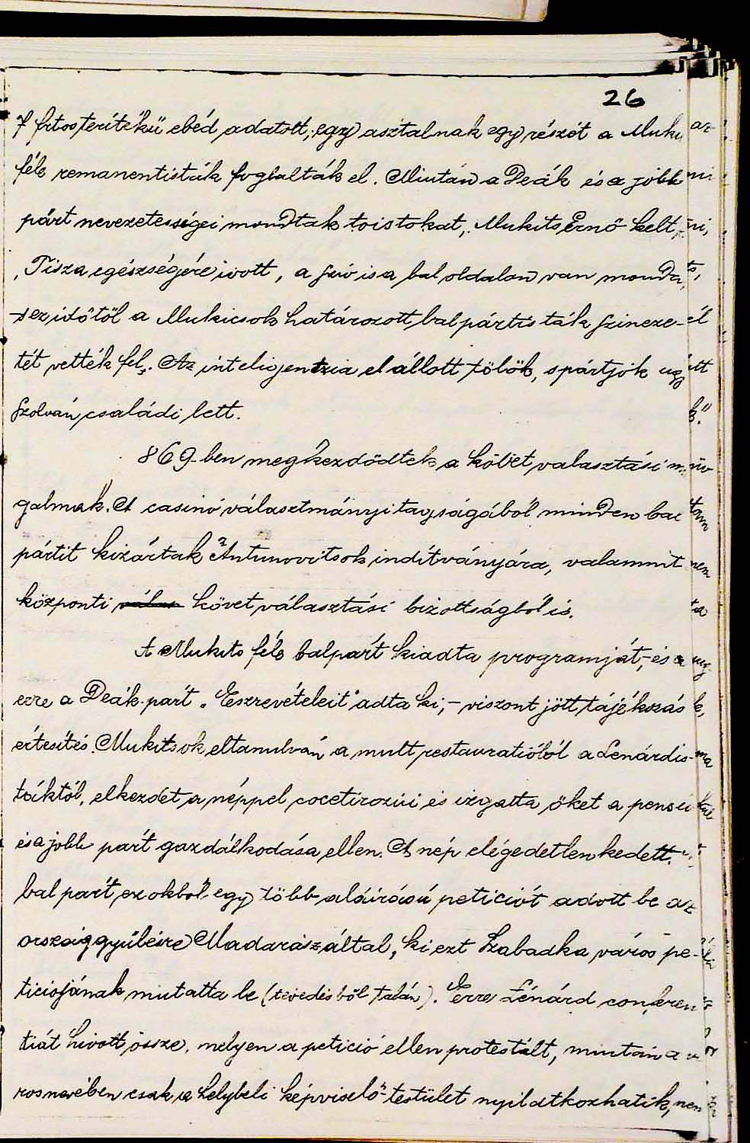 26
7 frtos teritékü ebéd adatott, egy asztalnak egy részét a Muki
féle remanentisták foglalták el. Miután a Deák és a jobb
párt nevezetességei mondtak toistokat, Mukits Ernő kelt
Tisza egészségére ivott, a sziv is a bal oldalon van monda,
ez időtöl a Mukicsok határozott balpártisták szineze-
tét vették fel. Az inteligentzia elállott tölök, s pártjók ugy
szolván családi lett.
869-ben megkezdödtek a követ választási
galmak. A casinó választmányi tagságából minden bal
pártit kizártak Antunovitsok inditványára, valamint
központi követ választási bizottságból is.
A Mukits féle balpart kiadta programját, és a
erre a Deák-párt "Eszrevételeit" adta ki, - viszont jött tájékzás
értesités. Mukitsok eltanulván a mult restauratióból a Lenárdis-
táktól, elkezdet a néppel cocetirozni és izgatta öket a
és a jobb párt gazdálkodása ellen. A nép elégedetlenkedett.
bal párt ez okból egy több aláirású peticiót adott be az
országgyülésre Madarász által, ki ezt Szabadka város pe-
ticiojának mutatta be (tévedésböl talán). Erre Lénárd conferen
tiát hivott össze, melyen a petició ellen protestált, mintán a
ros nevében csak a helybeli képviselö-testület nyilatkozhatik, nem